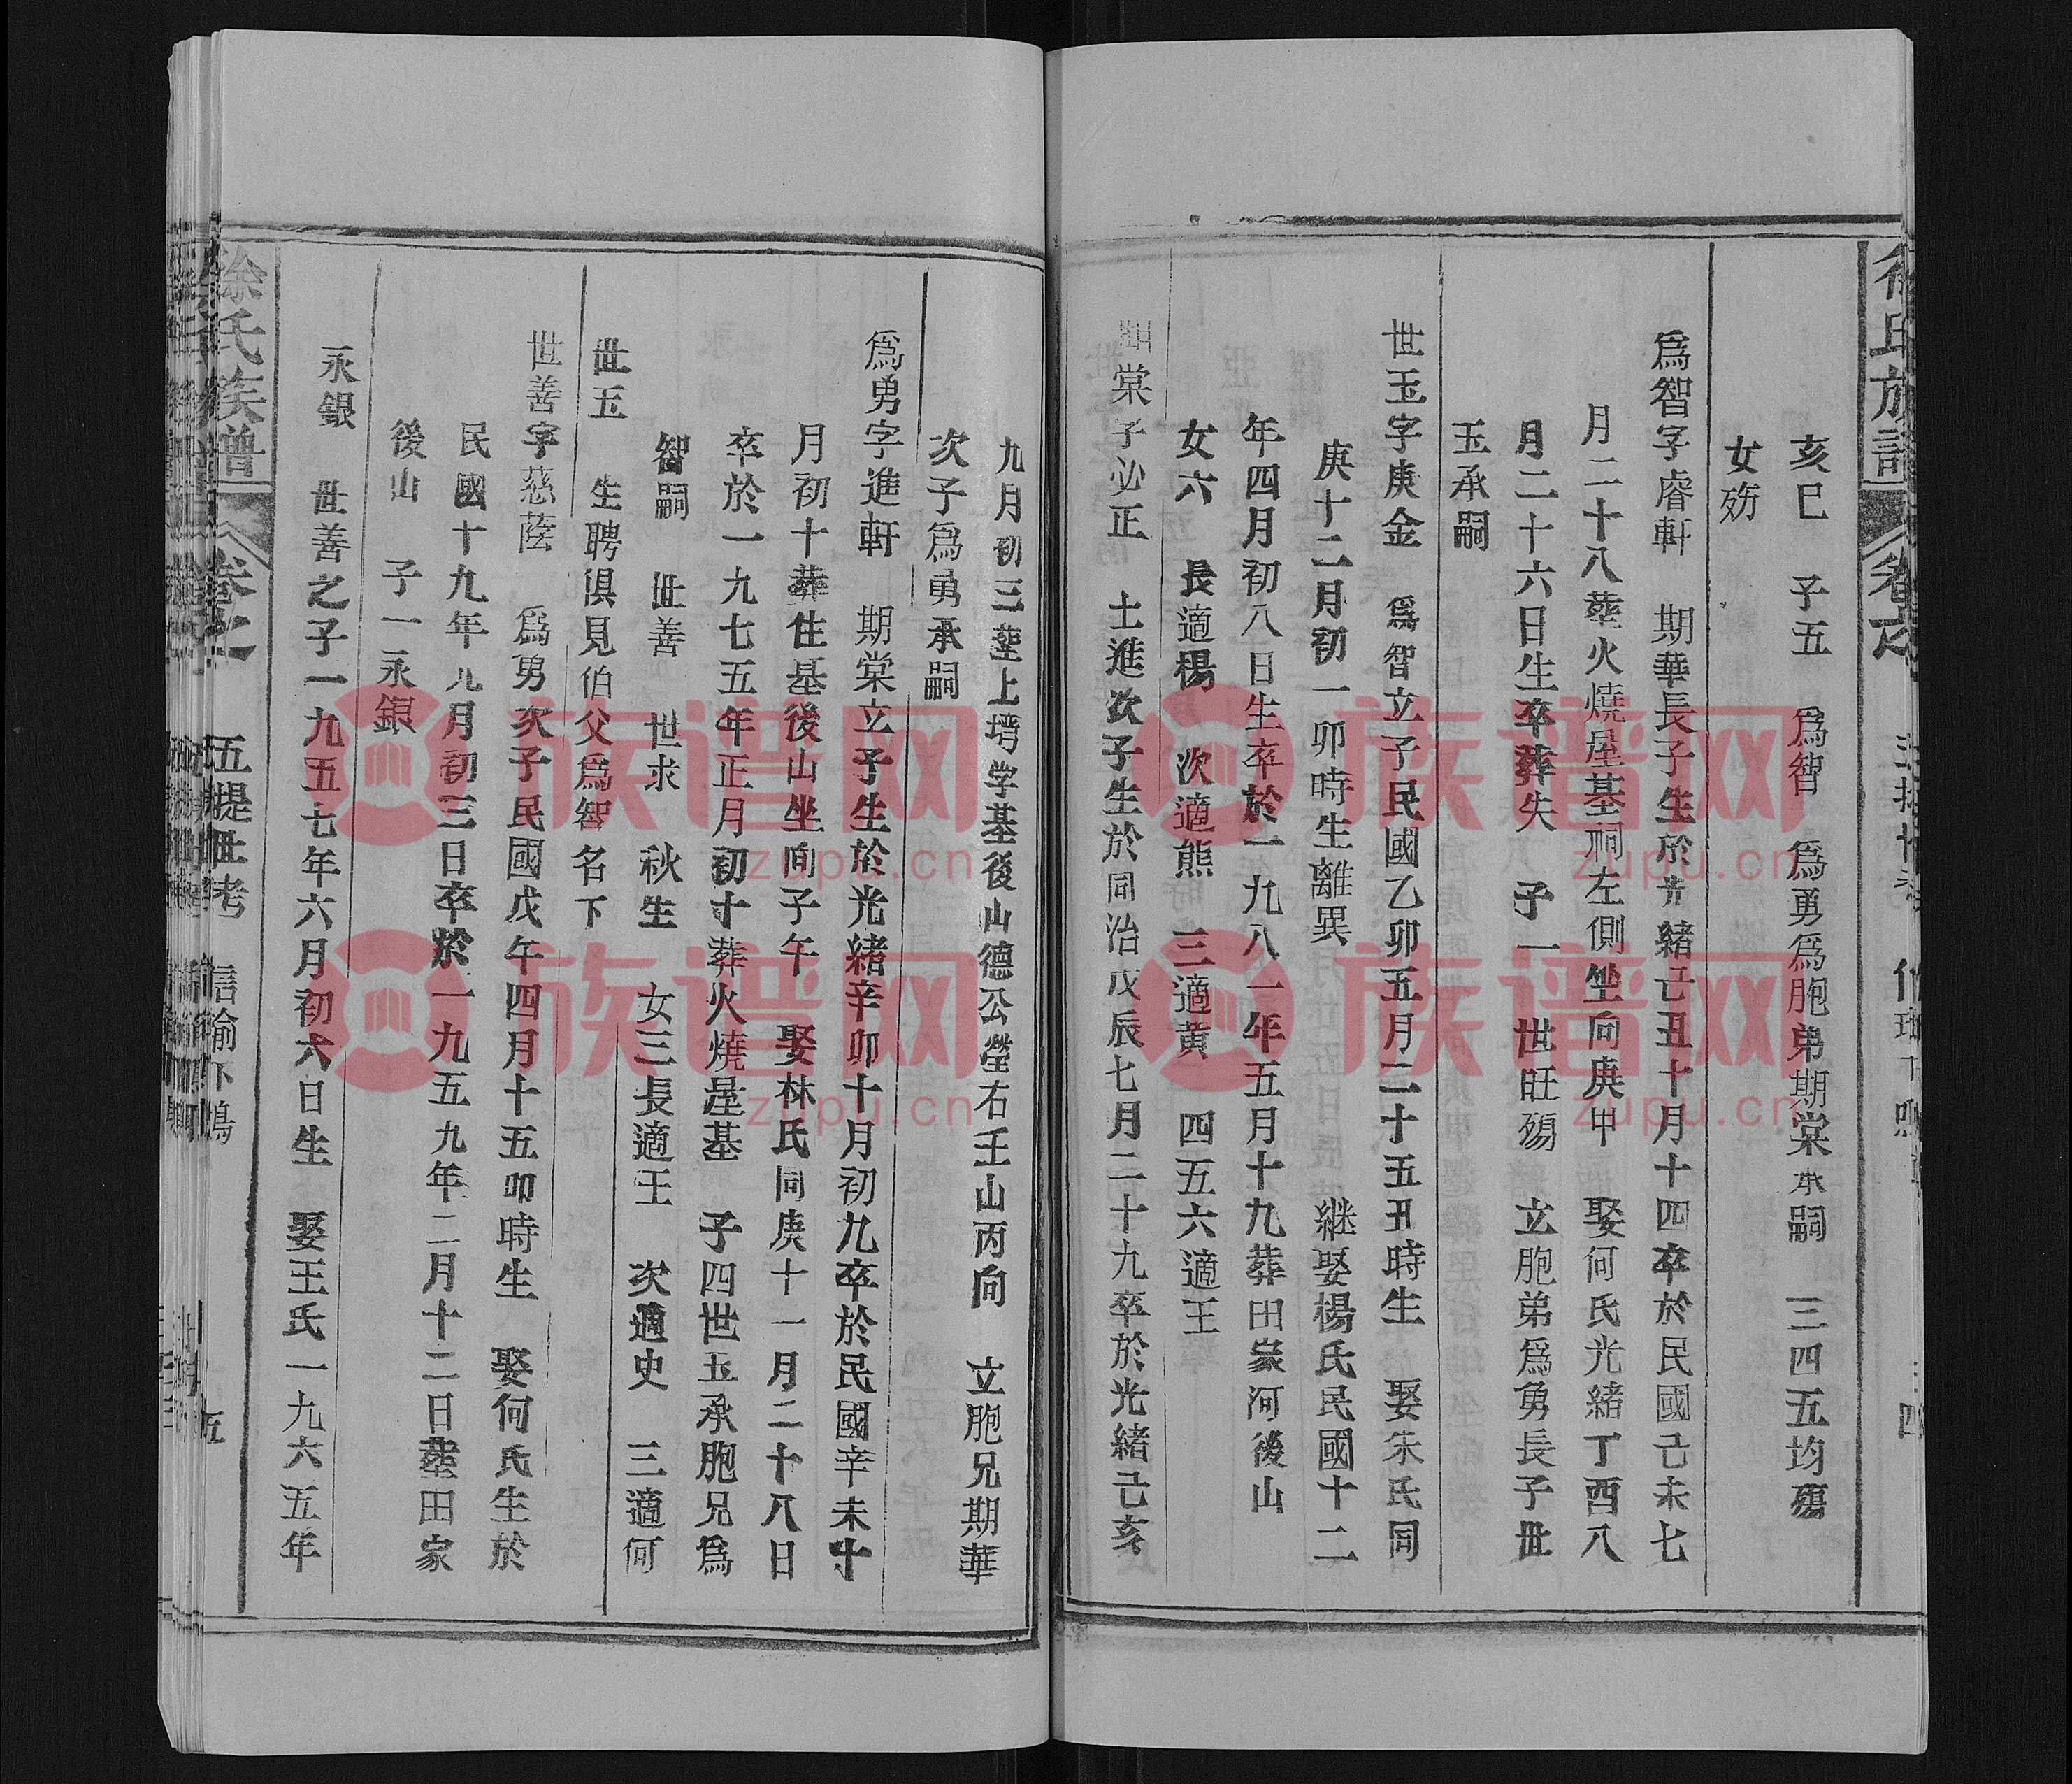 亥巳　子五　爲智　爲勇爲胞弟期棠承嗣　三四五均殤
女殇
爲智字睿軒　期華長子生於光緒己丑十月十四卒於民國己未七
月二十八塟火燒屋基祠左側坐向庚甲　娶何氏光緒丁酉八
月二十六日生卒葬失　子一　世旺殤　立胞弟爲勇長子世
玉承嗣
世玉字庚金　爲智立子民國乙卯五月二十五丑時生　娶朱氏同
庚十二月初一卯時生離異　継娶楊氏民國十二
年四月初八日生卒於一九八一年五月十九葬田家河後山
女六　長適楊　次適熊　三適黄　四五六適王
期棠子必正　士進次子生於同治戊辰七月二十九卒於光緒己亥
九月初三塟上塆学基後山德公塋右壬山丙向　立胞兄期華
次子爲勇承嗣
爲勇字進軒　期棠立子生於光緒辛卯十月初九卒於民國辛未十
月初十葬住基後山坐向子午　娶林氏同庚十一月二十八日
卒於一九七五年正月初十葬火燒屋基　子四世玉承胞兄爲
智嗣　世善　世求　秋生　女三長適王　次適史　三適何
世玉　生聘俱見伯父爲智名下
世善字慈蔭　爲勇次子民國戊午四月十五卯時生　娶何氏生於
民國十九年九月初三日卒於一九五九年二月十二日塟田家
後山　子一永銀
永銀　世善之子一九五七年六月初六日生　娶王氏一九六五年
徐氏族譜　卷之　五提世考　信　五
族谱网
zupu.cn
族谱网
zupu.cn
族谱网
zupu.cn
族谱网
zupu.cn